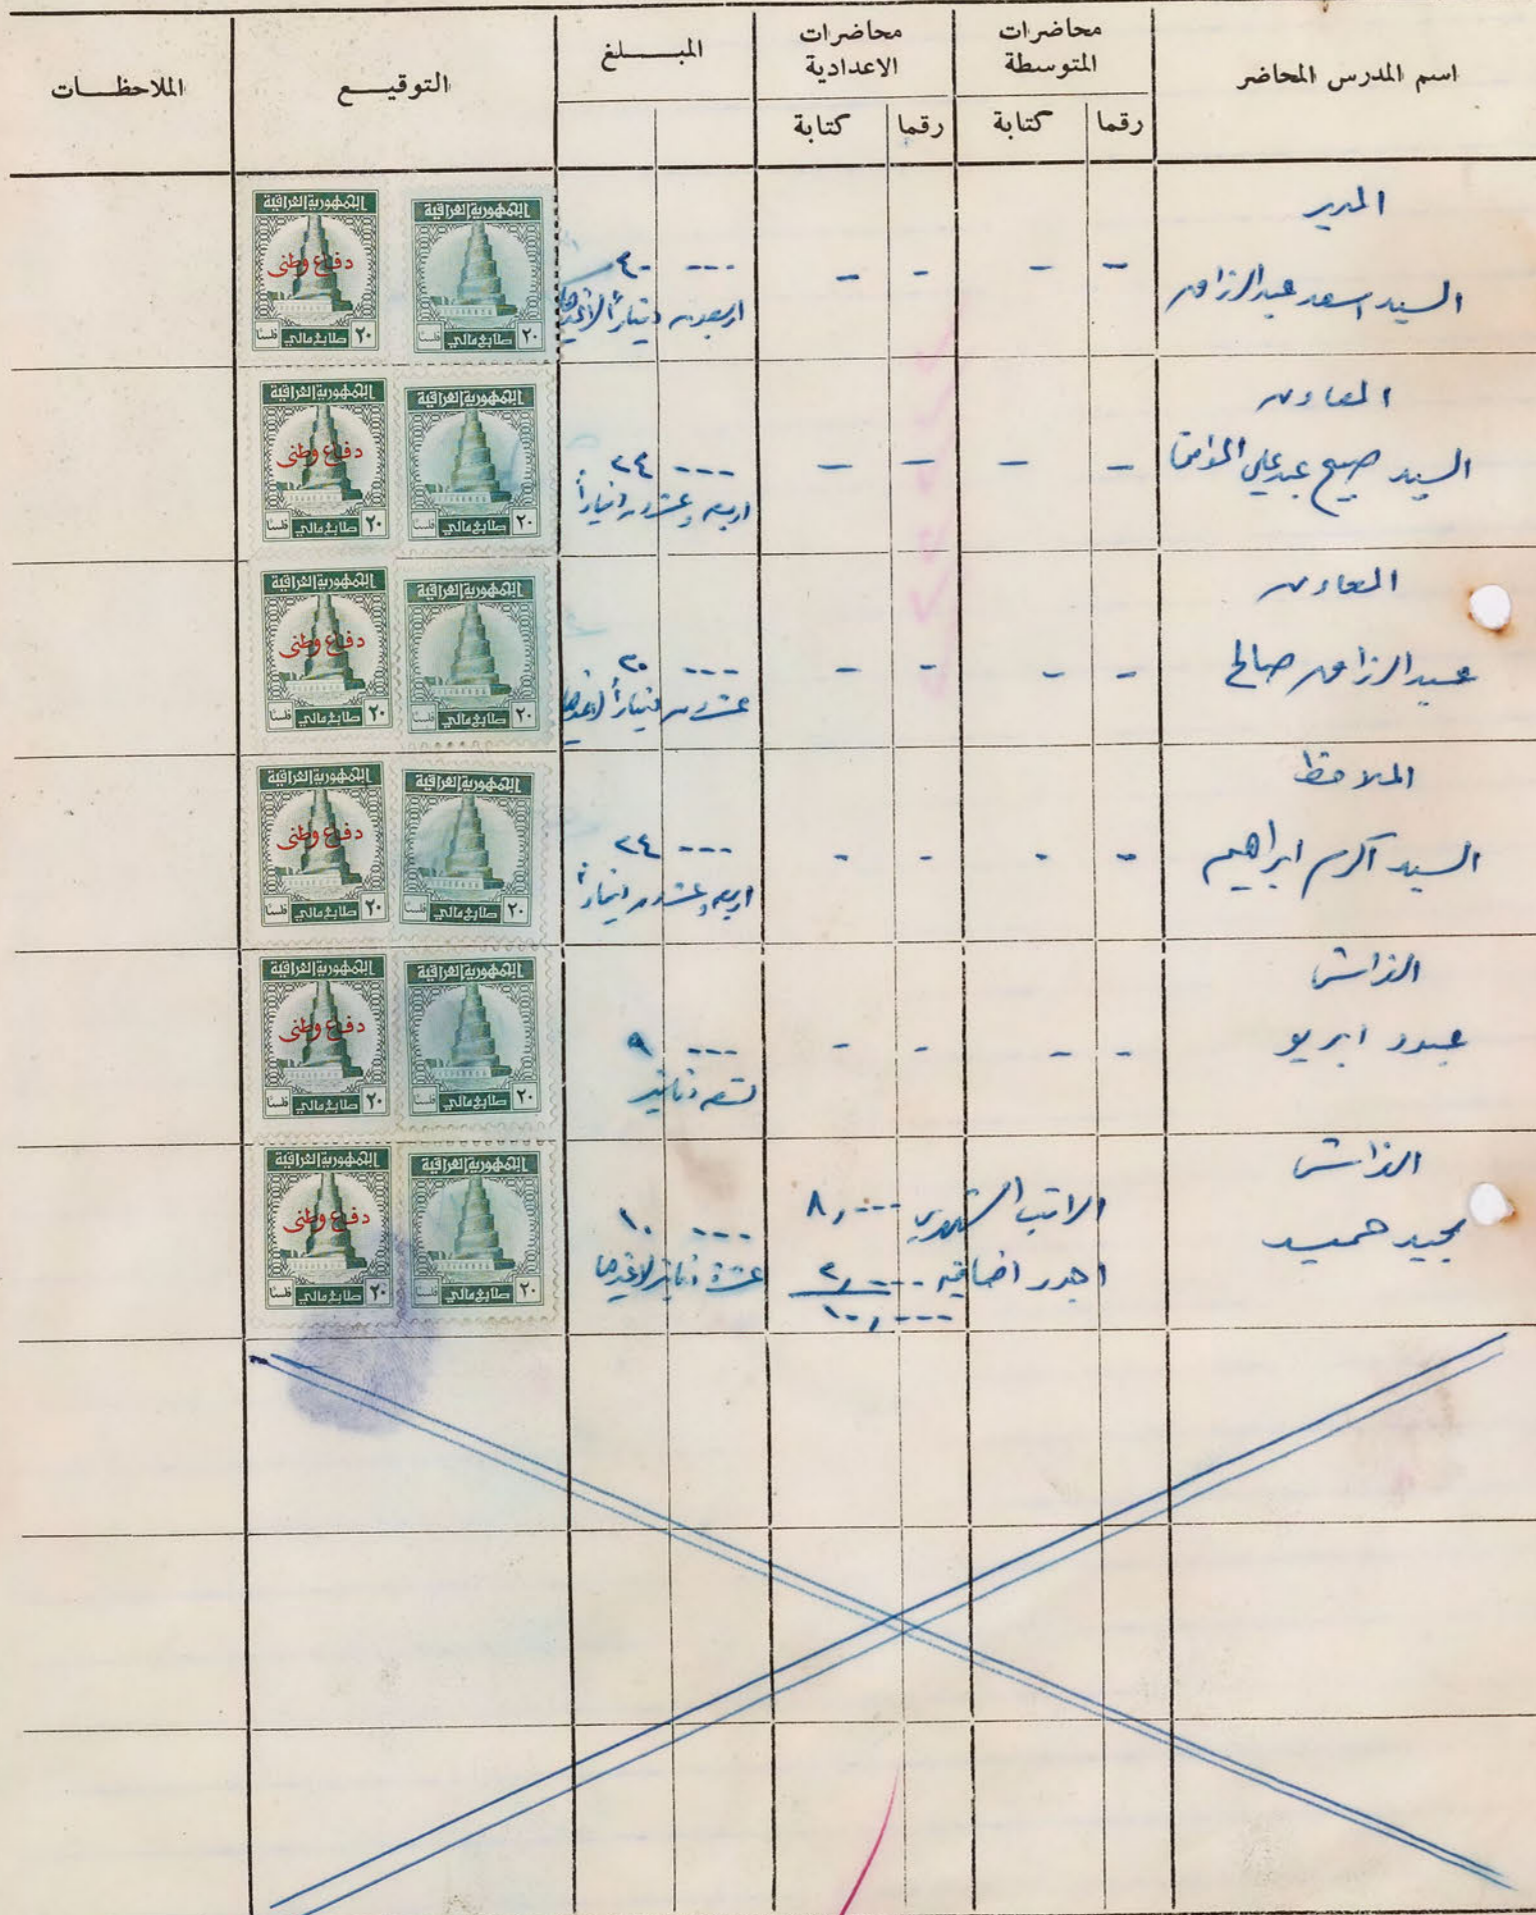 اسم المدرس المحاضر
محاضرات المتوسطة
محاضرات الاعدادية
المبلغ
التوقيع
الملاحظات
رقما
كتابة
رقما
كتابة
المدير
السيد اسعد عبد الرزاق
- - - -
--- ٤٠
اربعون ديناراً لاغيرها
الجمهورية العراقية
٢٠ طابع مالي فلسًا
الجمهورية العراقية
دفاع وطني
٢٠ طابع مالي فلسًا
المعاون
السيد صبيح عبد علي
- - - -
--- ٢٤
اربعه وعشرون ديناراً
الجمهورية العراقية
٢٠ طابع مالي فلسًا
الجمهورية العراقية
دفاع وطني
٢٠ طابع مالي فلسًا
المعاون
عبد الرزاق صالح
- - - -
--- ٢٠
عشرون ديناراً لاغيرها
الجمهورية العراقية
٢٠ طابع مالي فلسًا
الجمهورية العراقية
دفاع وطني
٢٠ طابع مالي فلسًا
الملاحظ
السيد اكرم ابراهيم
- - - -
--- ٢٤
اربعه وعشرون ديناراً
الجمهورية العراقية
٢٠ طابع مالي فلسًا
الجمهورية العراقية
دفاع وطني
٢٠ طابع مالي فلسًا
الفراش
- - - -
--- ٩
تسعه دنانير
الجمهورية العراقية
٢٠ طابع مالي فلسًا
الجمهورية العراقية
دفاع وطني
٢٠ طابع مالي فلسًا
الفراش
مجيد حميد
الراتب الشهري ٨,٠٠٠
اجور اضافيه ٢,٠٠٠
١٠,٠٠٠
--- ١٠
عشرة دنانير لاغيرها
الجمهورية العراقية
٢٠ طابع مالي فلسًا
الجمهورية العراقية
دفاع وطني
٢٠ طابع مالي فلسًا